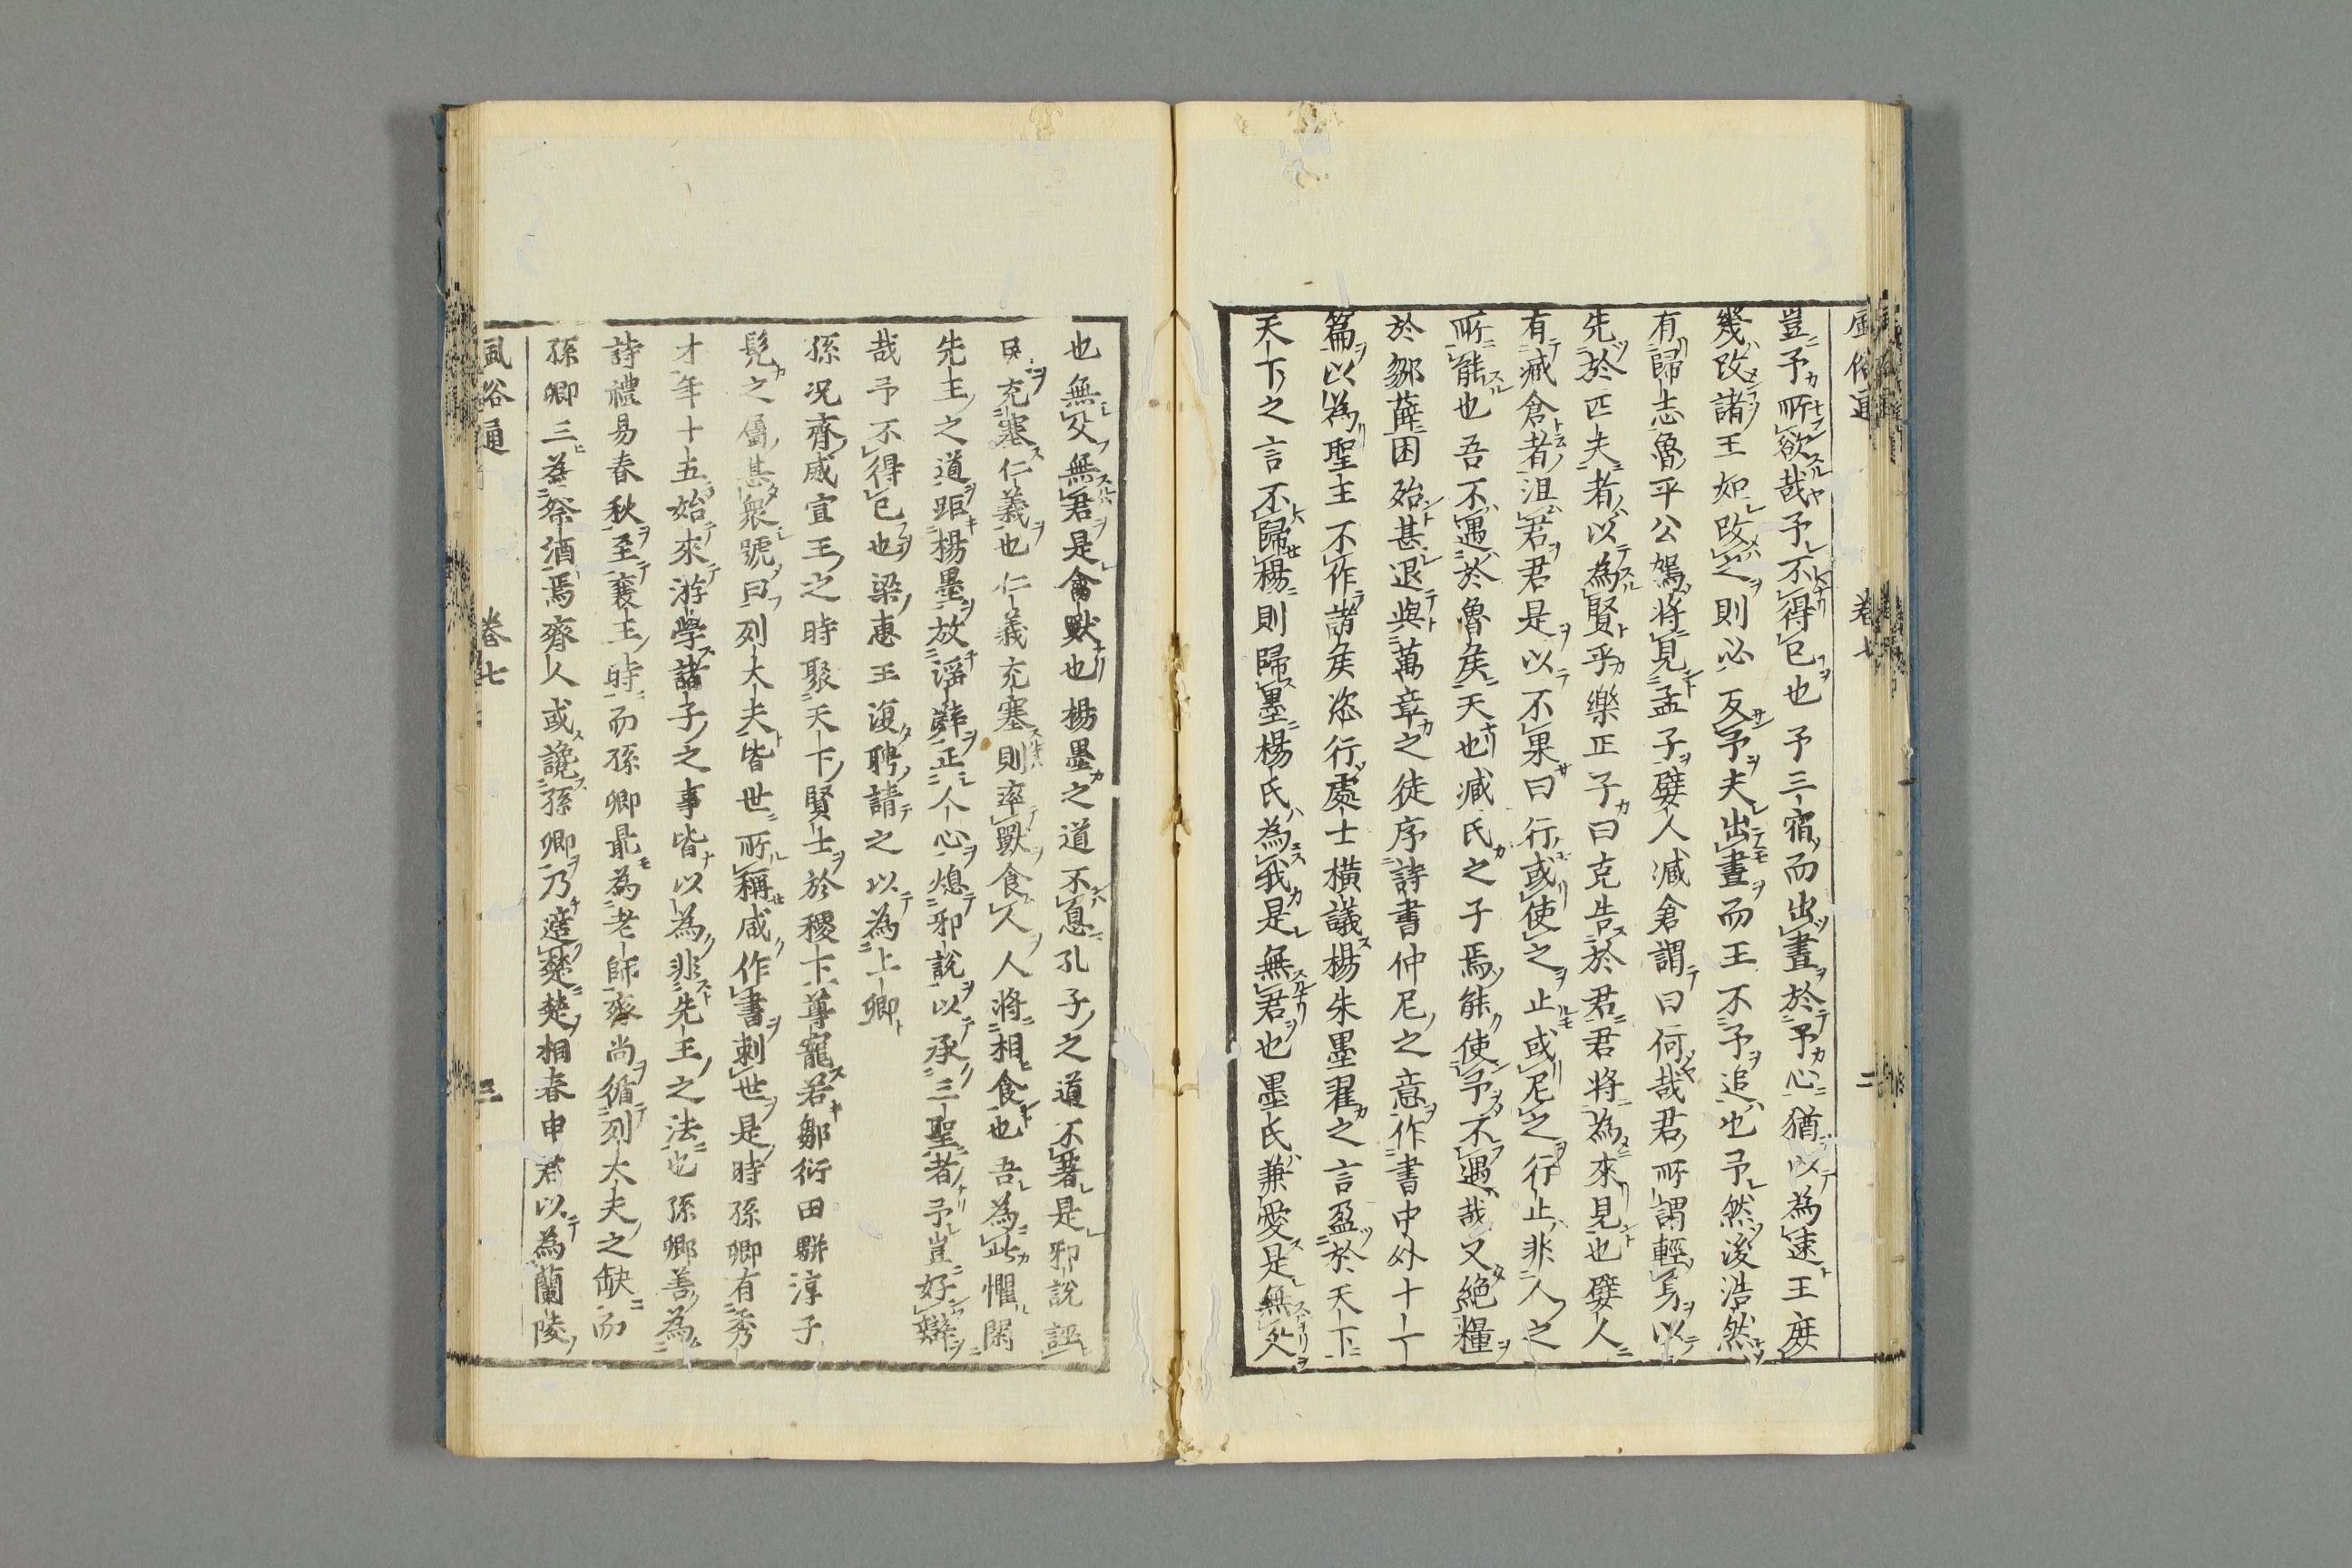 風俗通 卷七 二
豈予所欲哉予不得已也予三宿而出晝於予心猶以為速王庶
幾改諸王如改之則必反予夫出晝而王不予追也予然後浩然
有歸志魯平公駕將見孟子嬖人臧倉謂曰何哉君所謂輕身以
先於匹夫者以為賢乎樂正子曰克告於君君將為來見也嬖人
有臧倉者沮君君是以不果曰行或使之止或尼之行止非人之
所能也吾不遇於魯矦天也臧氏之子焉能使予不遇哉又絕糧
於鄒薛困殆甚退與萬章之徒序詩書仲尼之意作書中外十一
篇以為聖主不作諸矦恣行處士橫議楊朱墨翟之言盈於天下
天下之言不歸楊則歸墨楊氏為我是無君也墨氏兼愛是無父
也無父無君是禽獸也楊墨之道不息孔子之道不著是邪說誣
民充塞仁義也仁義充塞則率獸食人人將相食也吾為此懼閑
先王之道距楊墨放淫辭正人心熄邪說以承三聖者予豈好辯
哉予不得已也梁惠王復聘請之以為上卿
孫况齊威宣王之時聚天下賢士於稷下尊寵若鄒衍田駢淳于
髡之屬甚衆號曰列大夫皆世所稱咸作書刺世是時孫卿有秀
才年十五始來游學諸子之事皆以為非先王之法也孫卿善為
詩禮易春秋至襄王時而孫卿最為老師齊尚循列大夫之缺而
孫卿三為祭酒焉齊人或讒孫卿乃適楚楚相春申君以為蘭陵
風俗通 卷七 三